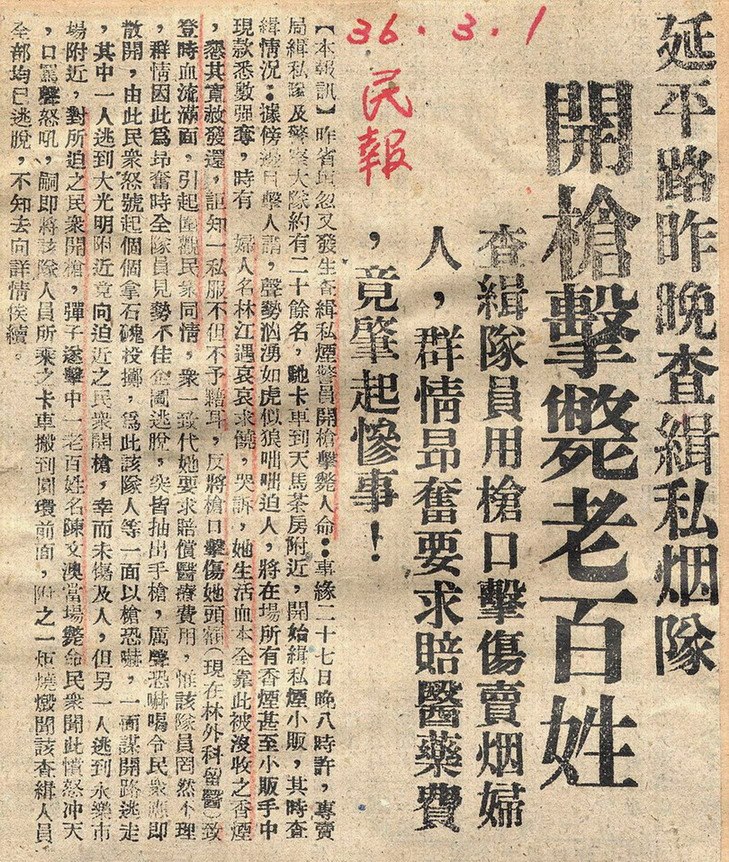 延平路昨晚查緝私烟隊
開槍擊斃老百姓
查緝隊員用槍口擊傷賣烟婦
人，群情昂奮要求賠醫藥費
，竟肇起慘事！
36.3.1
民報
【本報訊】昨省垣忽又發生查緝私煙警員開槍擊斃人命：事緣二十七日晚八時許，專賣
局緝私隊及警察大隊約有二十餘名，馳卡車到天馬茶房附近，開始緝私煙小販，其時查
緝情况：據傍邊目擊人謂，聲勢汹湧如虎似狼咄咄迫人，將在場所有香煙甚至小販手中
現款悉數强奪，時有 婦人名林江遇哀哀求饒，哭訴，她生活血本全靠此被沒收之香煙
，懇其寬赦發還，詎知一私服不但不予耳，反將槍口擊傷她頭額（現在林外科留醫）致
登時血流滿面，引起圍觀民衆同情，衆一致代她要求賠償醫療費用，惟該隊員罔然不理
，群情因此爲昂奮時全隊員見勢不佳企圖逃脫，突皆抽出手槍，厲聲恐嚇喝令民衆應即
散開，由此民衆怒號起個個拿石磈投擲，爲此該隊人等一面以槍恐嚇，一面謀開路逃走
，其中一人逃到大光明附近竟向迫近之民衆開槍，幸而未傷及人，但另一人逃到永樂市
場附近，對所迫之民衆開槍，彈子遂擊中一老百姓名陳文澳當場斃命民衆聞此憤怒冲天
，口罵聲怒吼，嗣即將該隊人員所乘之卡車搬到圓環前面，附之一炬燒燬聞該查緝人員
全部均已逃脫，不知去向詳情俟續。